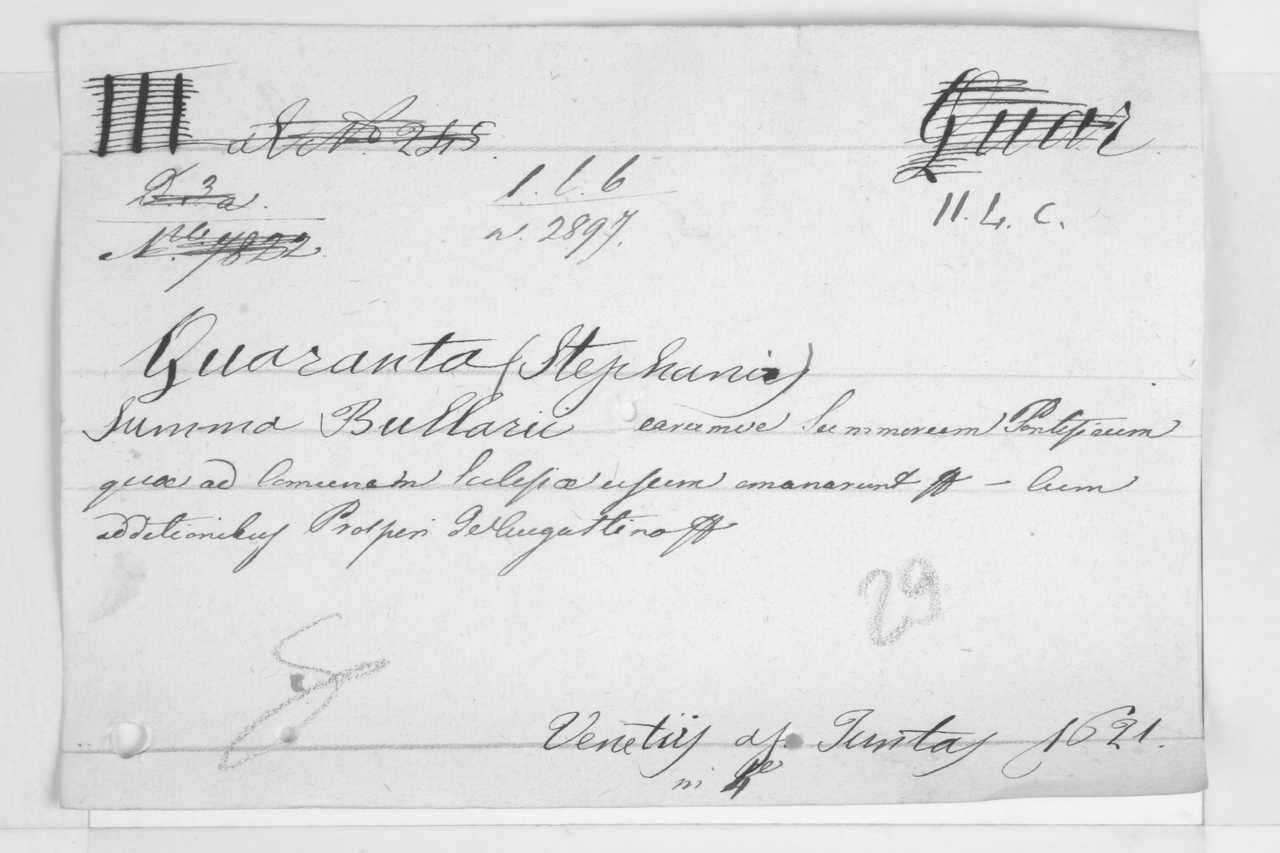 III ad No 245. Quar
D. 3 a. 1. l. 6 11. L. C.
Nro. 7822. n. 2897.
Quaranta (Stephani)
Summa Bullarii earumve Summorum Pontificum
quae ad Comunem Eclesiae usum emanarunt – Cum
additionibus Prosperi De Augustino
29
Venetiis ap. Juntas 1621.
in 4to